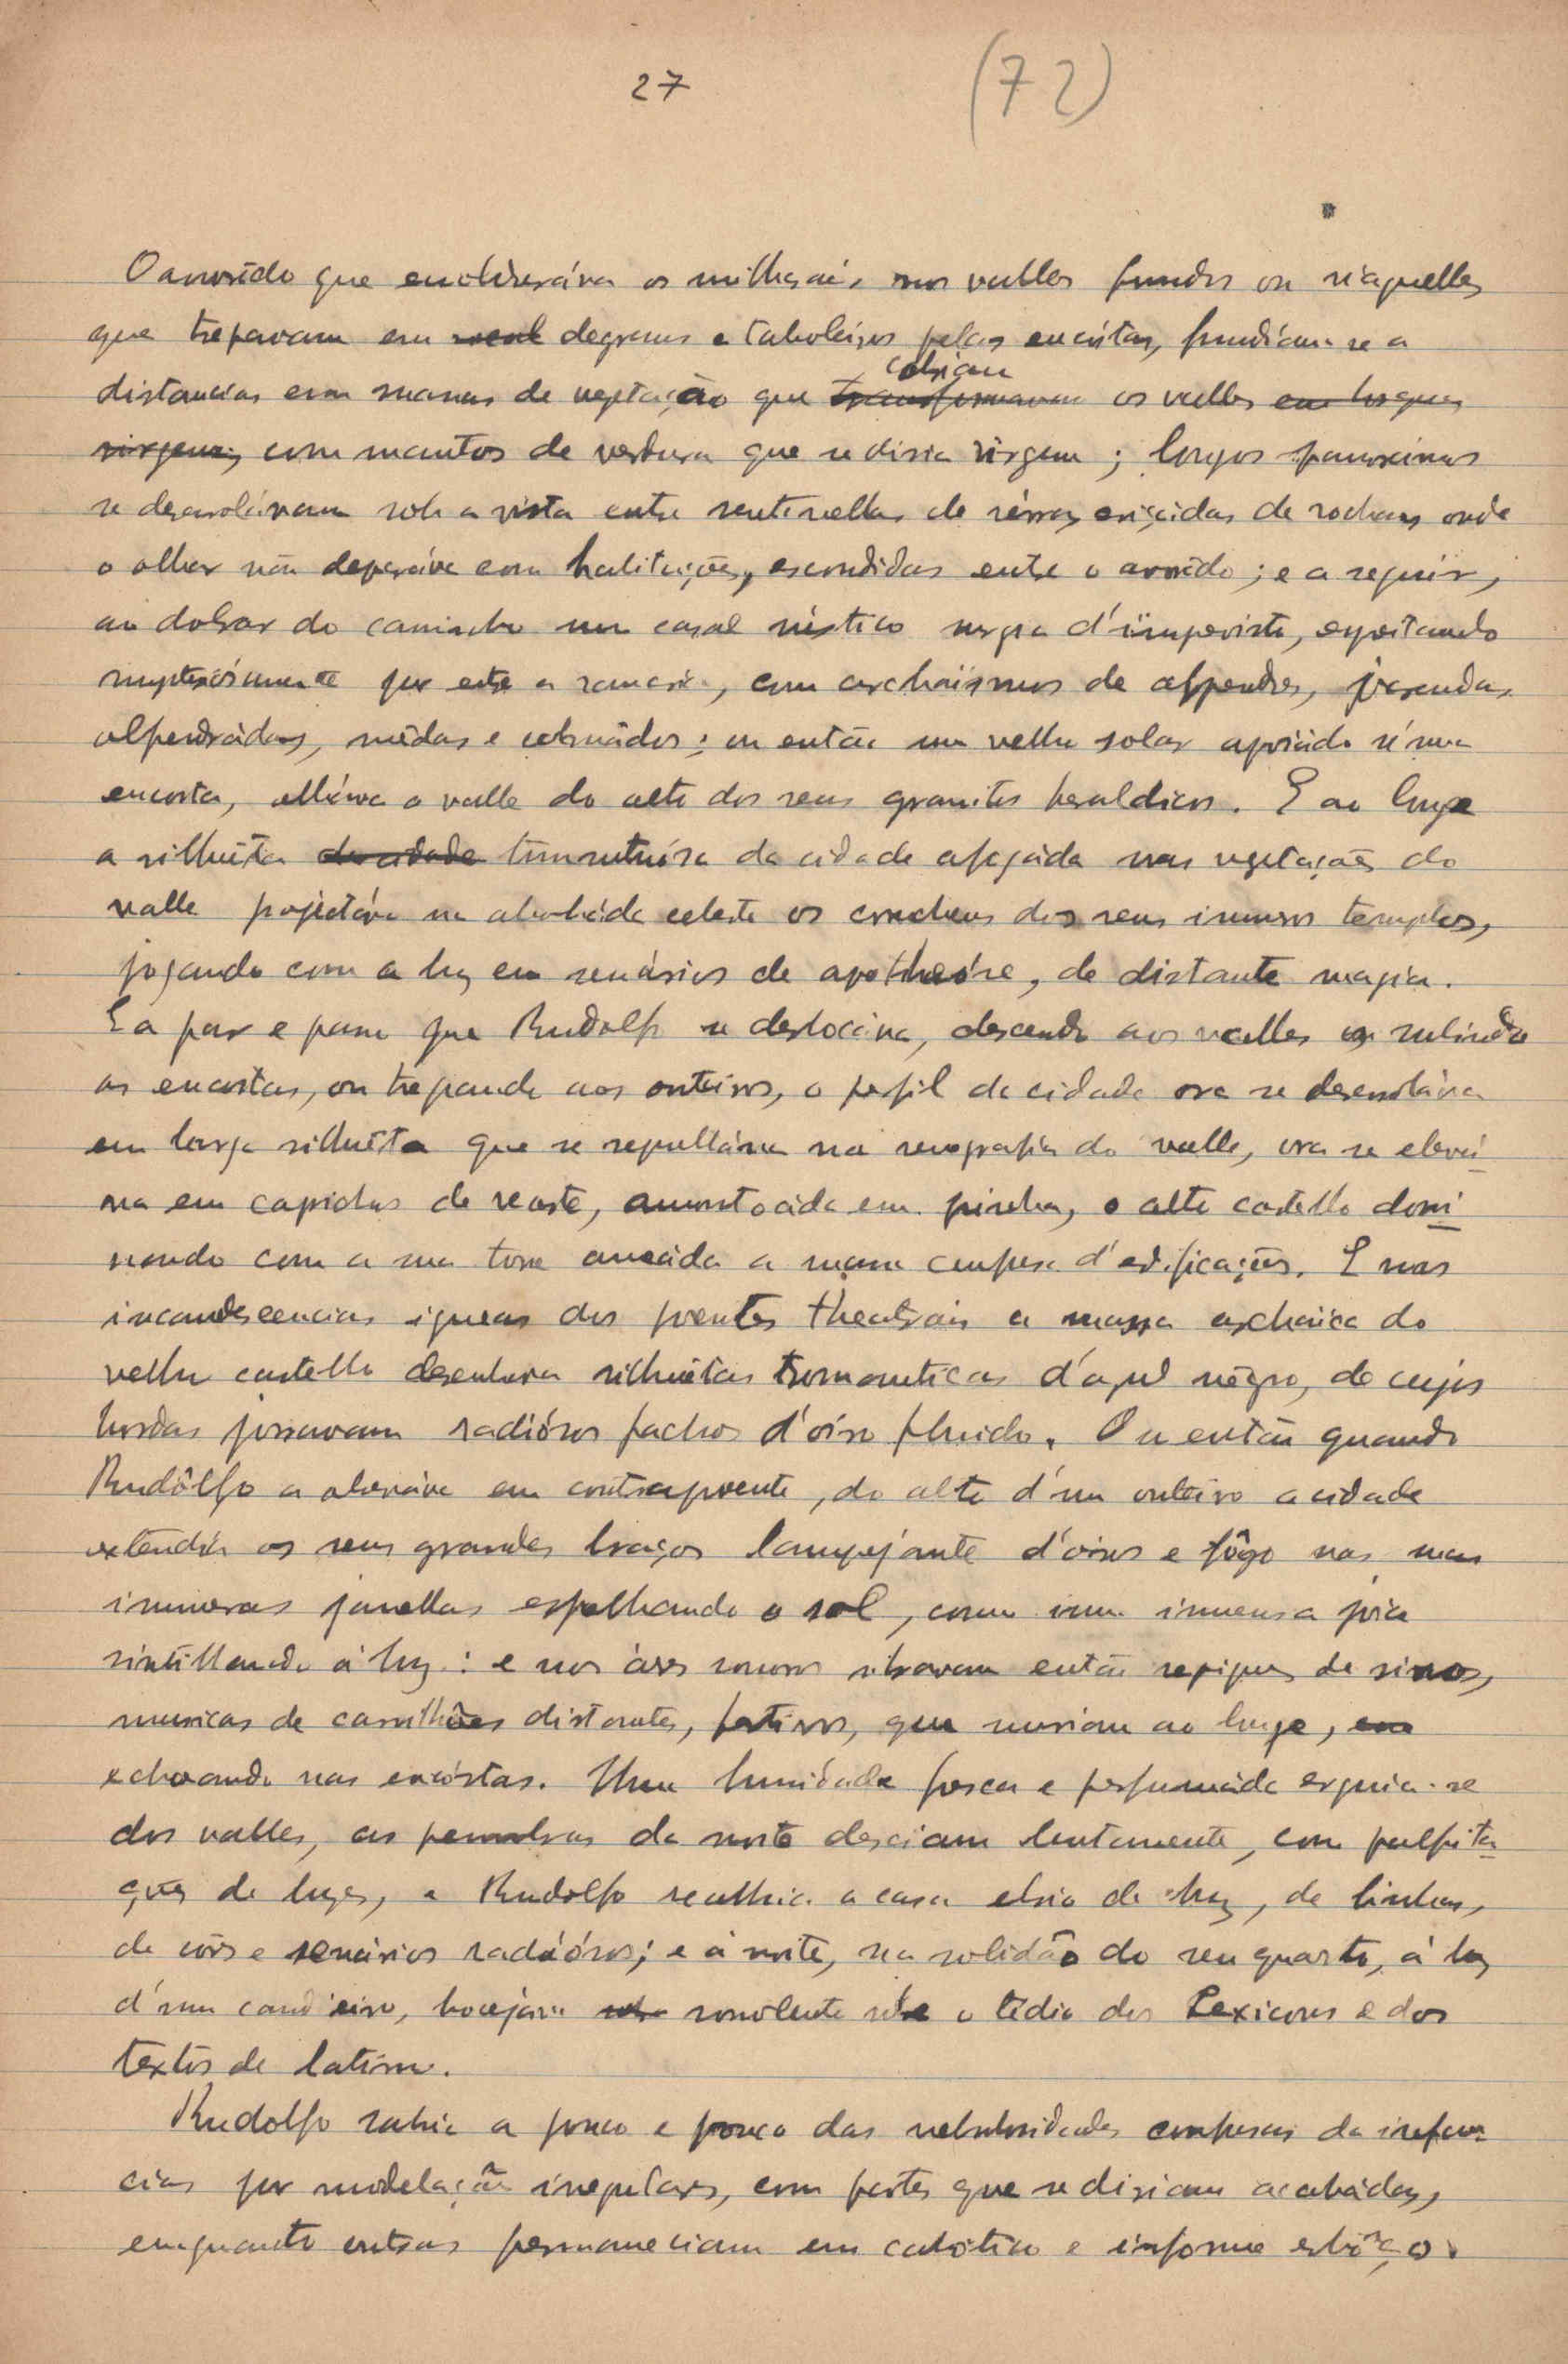 27
(72)
O arvorêdo que encobria os milharáis nos valles fundos ou n'aquelles
que trepavam em degraus e taboleiros pelas encostas, fundiam-se a
distancias em massas de vegetação que cobriam os valles
com mantos de verdura que se diria virgem; longos panoramas
se desenrolávam sob a vista entre sentinellas de sérras eriçidas de rochas onde
o olhar não deparáva com habitações, escondidas entre o arvorêdo; e a seguir,
ao dobrar do caminho um casal rústico surgia d'imprevisto, espreitando
mysteriósamente por entre a ramaria, com archaïsmos de alpendres, varandas
alpendrádas, mêdas e cobertos; ou então um velho solar apoiádo n'uma
encosta, olháva o valle do alto dos seus granitos heraldicos. E ao longe
a silhuêta tumultuósa da cidade afogáda nas vegetações do
valle projectáva na abobáda celeste os coruchéus dos seus inumeros templos,
jogando com a luz em scenários de apotheóse, de distante magia.
E a par e passo que Rudolfo se deslocáva, descendo aos valles ou subindo
as encostas, ou trepando aos outeiros, o perfil da cidade ora se desenroláva
em larga silhuêta que se sepultáva na orographia do valle, ora se elevá-
va em capiteis de recorte, amontoáda em pinha, o alto castello domi-
nando com a sua torre ameáda a massa confusa d'edificações. E nas
incandescencias igneas dos poentes theatrais a massa archaica do
velho castello desenhava silhuêtas romanticas d'azul nêgro, de cujas
bordas jorravam radiósos fachos d'oiro fluido. Ou então quando
Rudôlfo a observáva em contra poente, do alto d'um outeiro a cidade
extendia os seus grandes braços lampejante d'oiros e fôgo nas suas
inumeras janellas espelhando o sol, como uma immensa joia
sintillando á luz: e nos áres sonoros vibravam então repiques de sinos,
musicas de carrilhões distantes, festivos, que morriam ao longe,
echoando nas encóstas. Uma humidade fresca e perfumáda erguia-se
dos valles, as penumbras da noite desciam lentamente, com palpita-
ções de luzes, e Rudolfo recolhia a casa ebrio de luz, de linhas,
de côres e scenários radiósos; e á noite, na solidão do seu quarto, á luz
d'um candieiro, bocejava sonolento sobre o tédio dos Lexicons e dos
textos de latim.
Rudolfo sahia a pouco e pouco das nebulosidades confusas da infan-
cia por modelações irregulares, com partes que se diriam acabádas,
emquanto outras permaneciam em cahótico e informe esbôço.